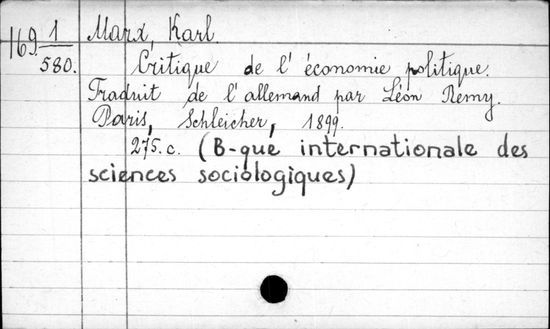 169. 1 Marx, Karl.
580. Critique de l'économie politique.
Traduit de l'allemand par Léon Remy.
Paris, Schleicher, 1899.
275.c. (B-que internationale des
sciences sociologiques)